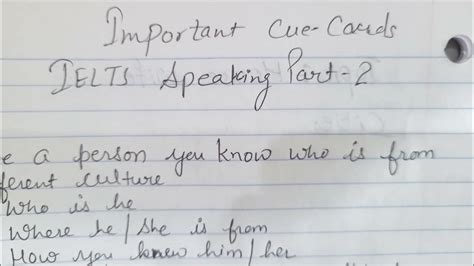 Important Cue-Cards
IELTS Speaking Part-2
e a person you know who is from
ferent culture
Who is he
Where he/she is from
How you knew him/her